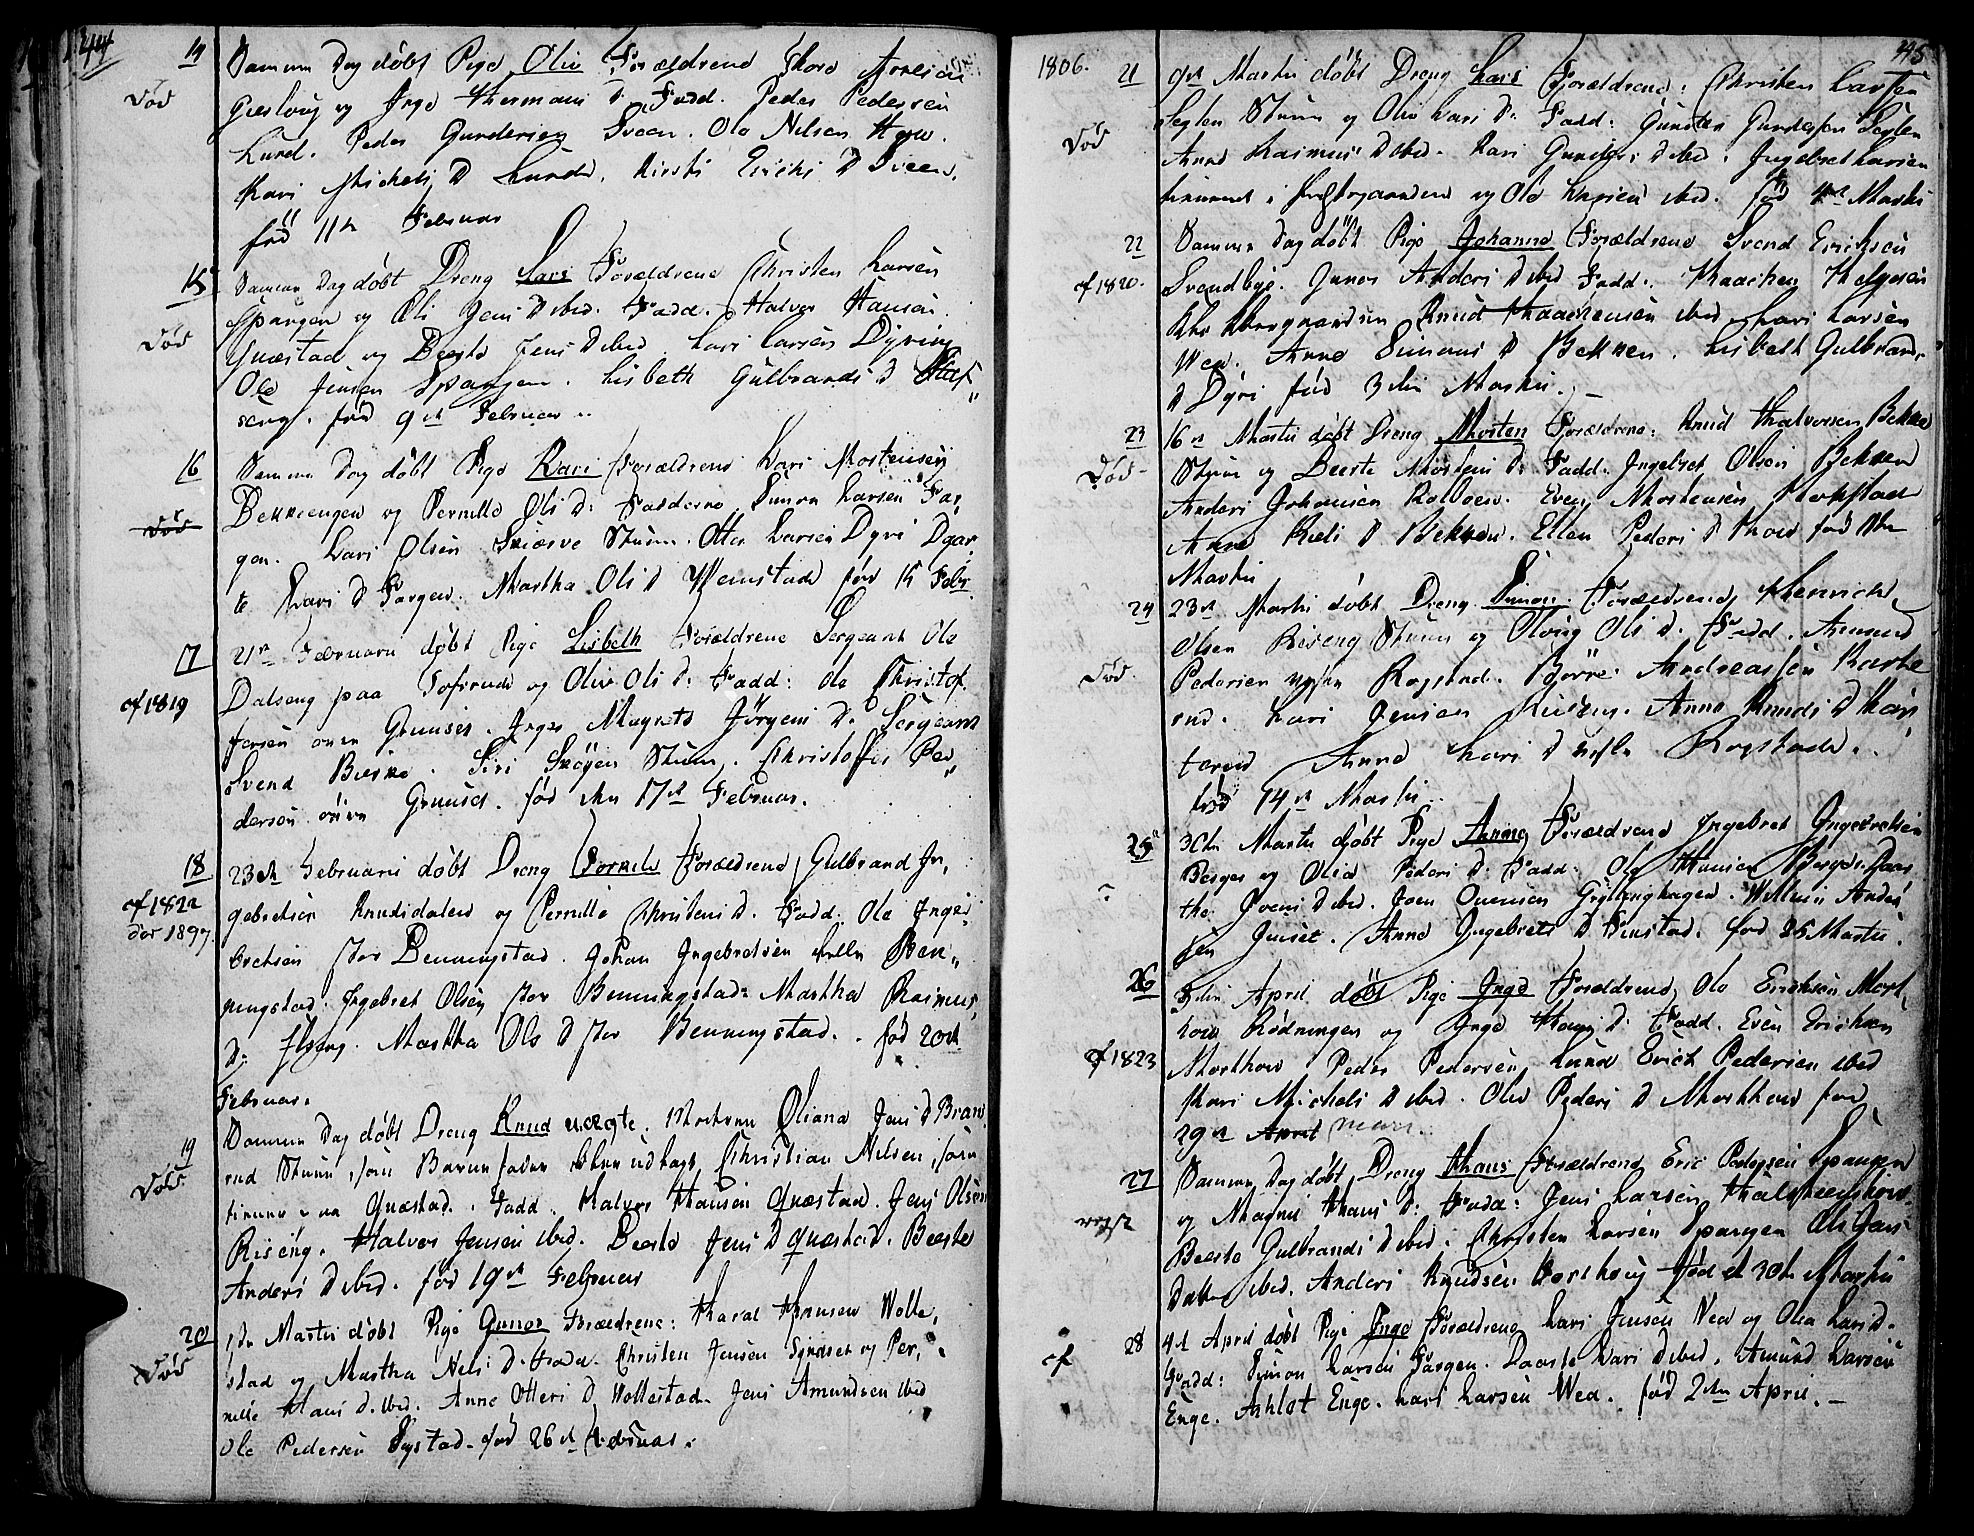 44
14 Samme Dag døbt Pige Oliv Forældrene Thore Arnesen
død Giesloug og Inge Hermans D. Fadd. Peder Pedersen
Lund. Peder Gundersen Sveen. Ole Nilsen How.
Kari Michels D Lunde. Kirsti Erichs D Sveen.
fød 11te Februar
15 Samme Dag døbt Dreng Lars Forældrene Christen Larsen
Spangen og Oli Jens D ibid. Fadd. Halvor Hansen
død Qvæstad og Beerte Jens D ibid. Lars Larsen Dyring
Ole Jensen Spangen. Lisbeth Gulbrands D
seng. fød 9de Februar
16 Samme Dag døbt Pige Kari Forældrene Lars Mortensen
Bekkeengen og Pernille Ols D: Fadderne Simon Larsen Far
død gen. Lars Olsen Skierve Stuen. Otter Larsen Dyri Dgar
te Lars D Fargen. Martha Ols D Wemstad fød 15 Febr.
17 21de Februari døbt Pige Lisbeth Forældrene Sergeant Ole
cf 1819 Dalseng paa Tofsrud og Oliv Ols D: Fadd: Ole Christof
fersen øvre Grunset. Inger Magrete Jörgens D. Sergeant
Svend Bierke. Siri Skøyen Stuen. Christoffer Pe
dersen øivre Grunset. fød den 17de Februar.
18 23de Februarii døbt Dreng Cornele Forældrene Gulbrand In
cf 1822 gebretsen Knudsdalen og Pernille Christens D. Fadd. Ole Inge
dør 1897. bretsen stor Benningstad. Johan Ingebretsen lille Ben
ningstad. Ingebret Olsen stor Benningstad. Martha Rasmus
D: Aasen. Martha Ols D stor Benningstad. fød 20de
Februar.
19 Samme Dag døbt Dreng Knud uægte. Moderen Oliana Jens D Bran
rud Stuen, som Barne fader blev udlagt Christian Nilsen, som
død tiener paa Qvæstad. Fadd. Halvor Hansen Qvæstad. Jens Olsen
Riseng. Halvor Jensen ibid. Beerte Jens D Qvæstad. Beerte
Anders D ibid. fød 19de Februar
20 1ste Martii døbt Pige Gunor Forældrene: Harald Hansen Wolle
stad og Martha Nels D. Fadd. Christen Jensen Sindset og Per
død nille Hans D. ibid. Anne Otters D Wollestad. Jens Amundsen ibid
Ole Pedersen Systad. fød 26de Februar.
1806. 445
21 9de Martii døbt Dreng Lars Forældrene: Christen Larsen
Seglen Stuen og Oliv Lars D. Fadd: Gunder Gundersen Seglen
død Anne Rasmus D ibid. Kari Gunders D ibid. Ingebret Larsen
tienende i Præstegaarden og Ole Larsen ibid. fød 4de Martii
22 Samme Dag døbt Pige Johanne Forældrene Svend Erichsen
cf 1820. Svendbye. Gunor Anders D ibid Fadd: Haachen Helgesen
Knud Haachensen ibid. Lars Larsen
Wed. Anne Simons D Bekken. Lisbeth Gulbrands
D Dyri fød 3die Martii.
23 16de Martii døbt Dreng Morten Forældrene: Knud Halvorsen Bekke
død Stuen og Beerte Mortens D: Fadd. Ingebret Olsen Bekken
Anders Johansen Kolboen. Even Mortensen Kropstad
Anne Niels D Bekken. Ellen Peders D How fød 8de
Martii
24 23de Martii døbt Dreng Simon. Forældrene Henrich
Olsen Riseng Stuen og Oloug Ols D. Fadd. Amund
død. Pedersen nysen Rogstad. Börre Andreassen Karte
rud. Lars Jensen Riseng. Anne Knuds D Kar
terud Anne Lars D nysen Rogstad.
fød 14de Martii
25 30te Martii døbt Pige Anne Forældrene Ingebret Ingebretsen
Berger og Olea Peders D. Fadd: Ole Hansen Berger. Dar
the Svens D ibid. Joen Svensen Gryttinghagen. Willum Ander
sen Juset. Anne Ingebrets D Finstad. fød 25 Martii.
26 3die April døbt Pige Inge Forældrene Ole Erichsen Mort
how Rødningen og Inge Hans D. Fadd. Even Erichsen
cf 1823 Morthow Peder Pedersen Lund Erich Pedersen ibid
Kari Michels D ibid. Oliv Peders D Morthow fød
29de April mars.
27 Samme Dag døbt Dreng Hans Forældrene Eric Pedersen Spangen
og Magnil Hans D: Fadd: Jens Larsen Halsteenshow
Beerte Gulbrands D ibid. Christen Larsen Spangen Oli Jens
Datter ibid. Anders Knudsen Korshoug fød d 30te Martii
28 4de April døbt Pige Inge Forældrene Lars Jensen Wed og Olea Lars D.
cf Fadd: Simon Larsen Fargen. Daarte Lars D ibid. Amund Larsen
Enge. Ashlet Enge. Lars Larsen Wed. fød 2den April.